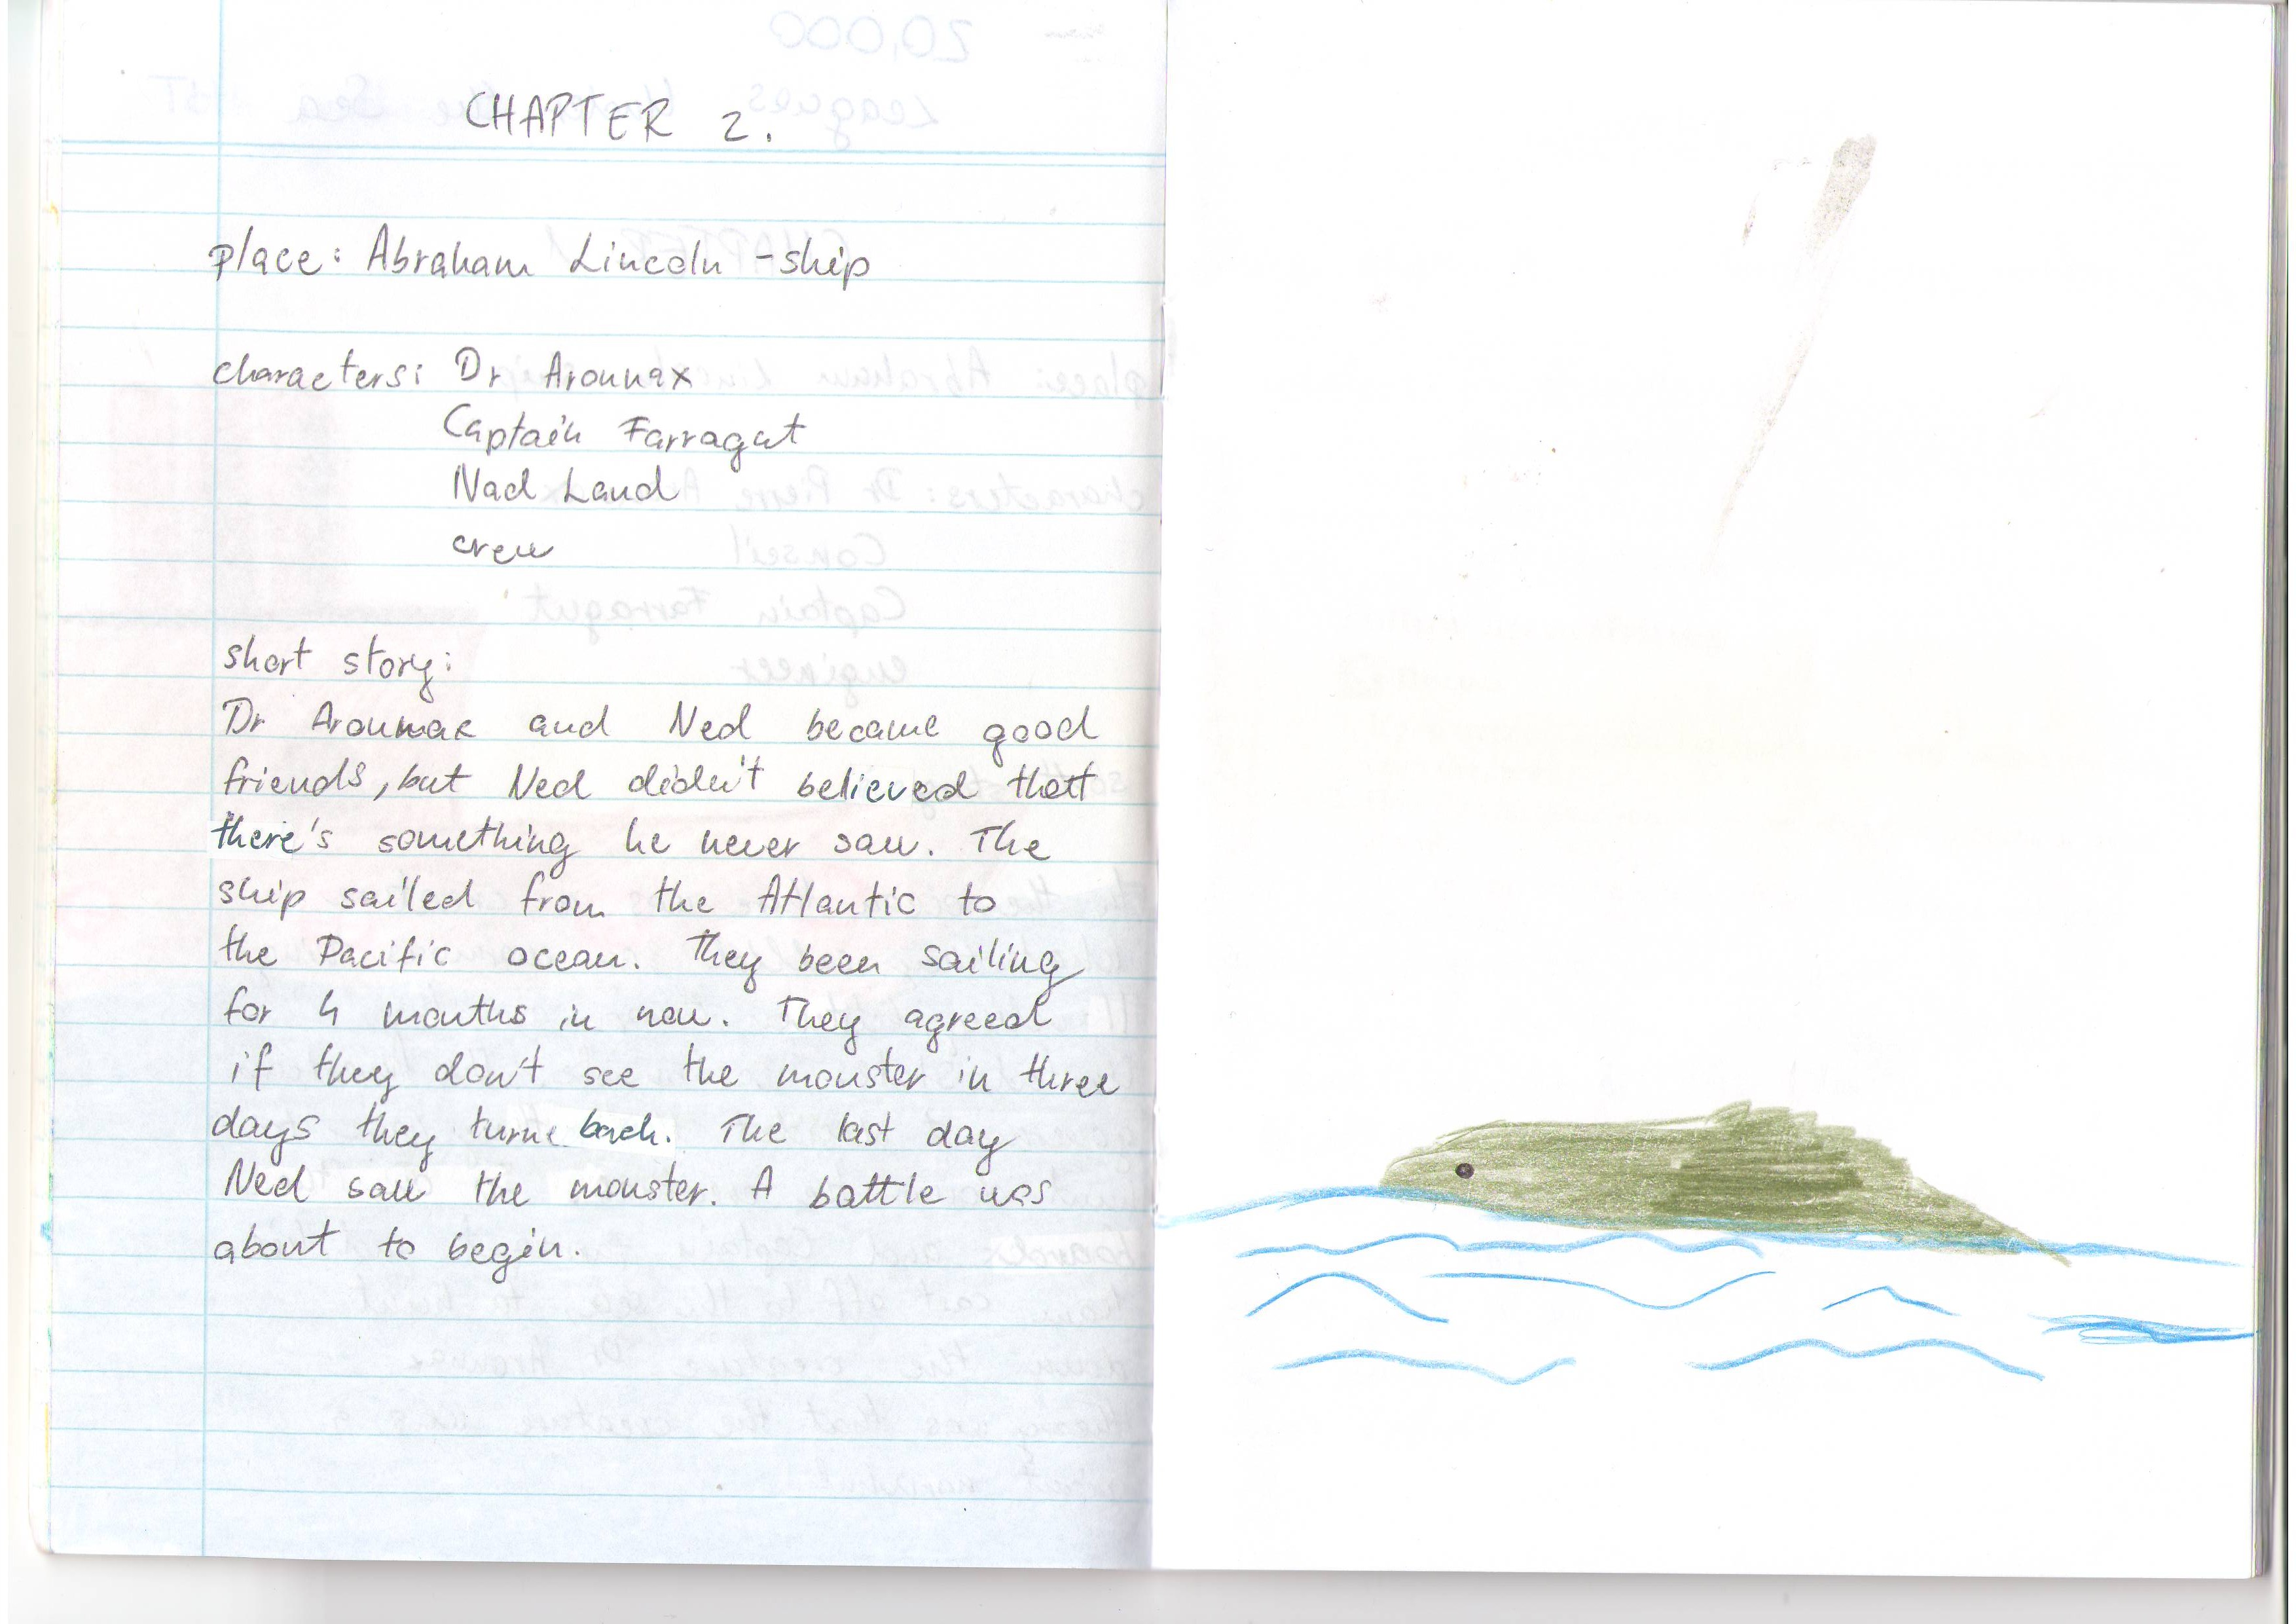 CHAPTER 2.
place: Abraham Lincoln - ship
characters: Dr Arounax
Captain Farragut
Nad Land
crew
short story:
Dr Arounax and Ned became good
friends, but Ned didn't believed that
there's something he never saw. The
ship sailed from the Atlantic to
the Pacific ocean. They been sailing
for 4 months in now. They agreed
if they don't see the monster in three
days they turne back. The last day
Ned saw the monster. A battle was
about to begin.